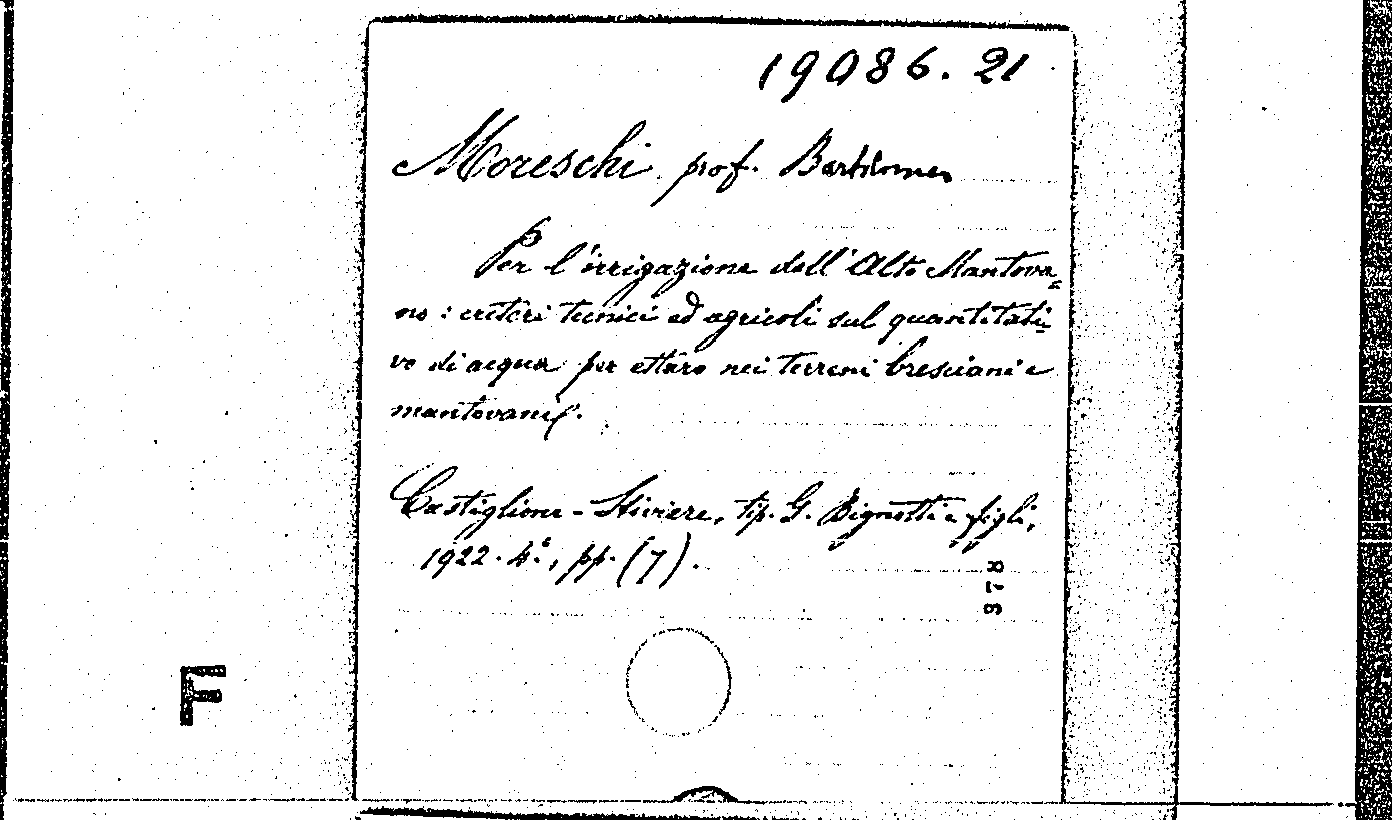 19086. 21
Moreschi prof. Bartolomeo
Per l'irrigazione dell'Alto Mantova=
no : criteri tecnici ed agricoli sul quantitati=
vo di acqua per ettaro nei terreni bresciani e
mantovani.
Castiglione - Stiviere, tip. G. Bignotti e figli,
1922. 4°., pp. (7).
978
F